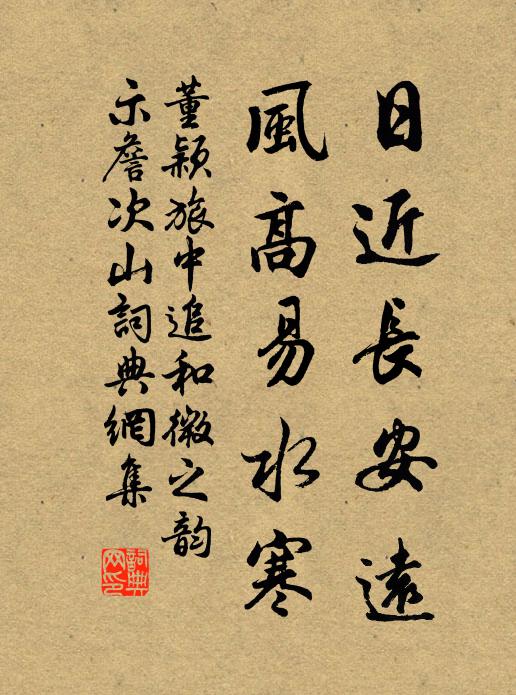 日近長安遠
風高易水寒
董穎旅中追和微之韵
示詹次山詞典網集
詞典网印